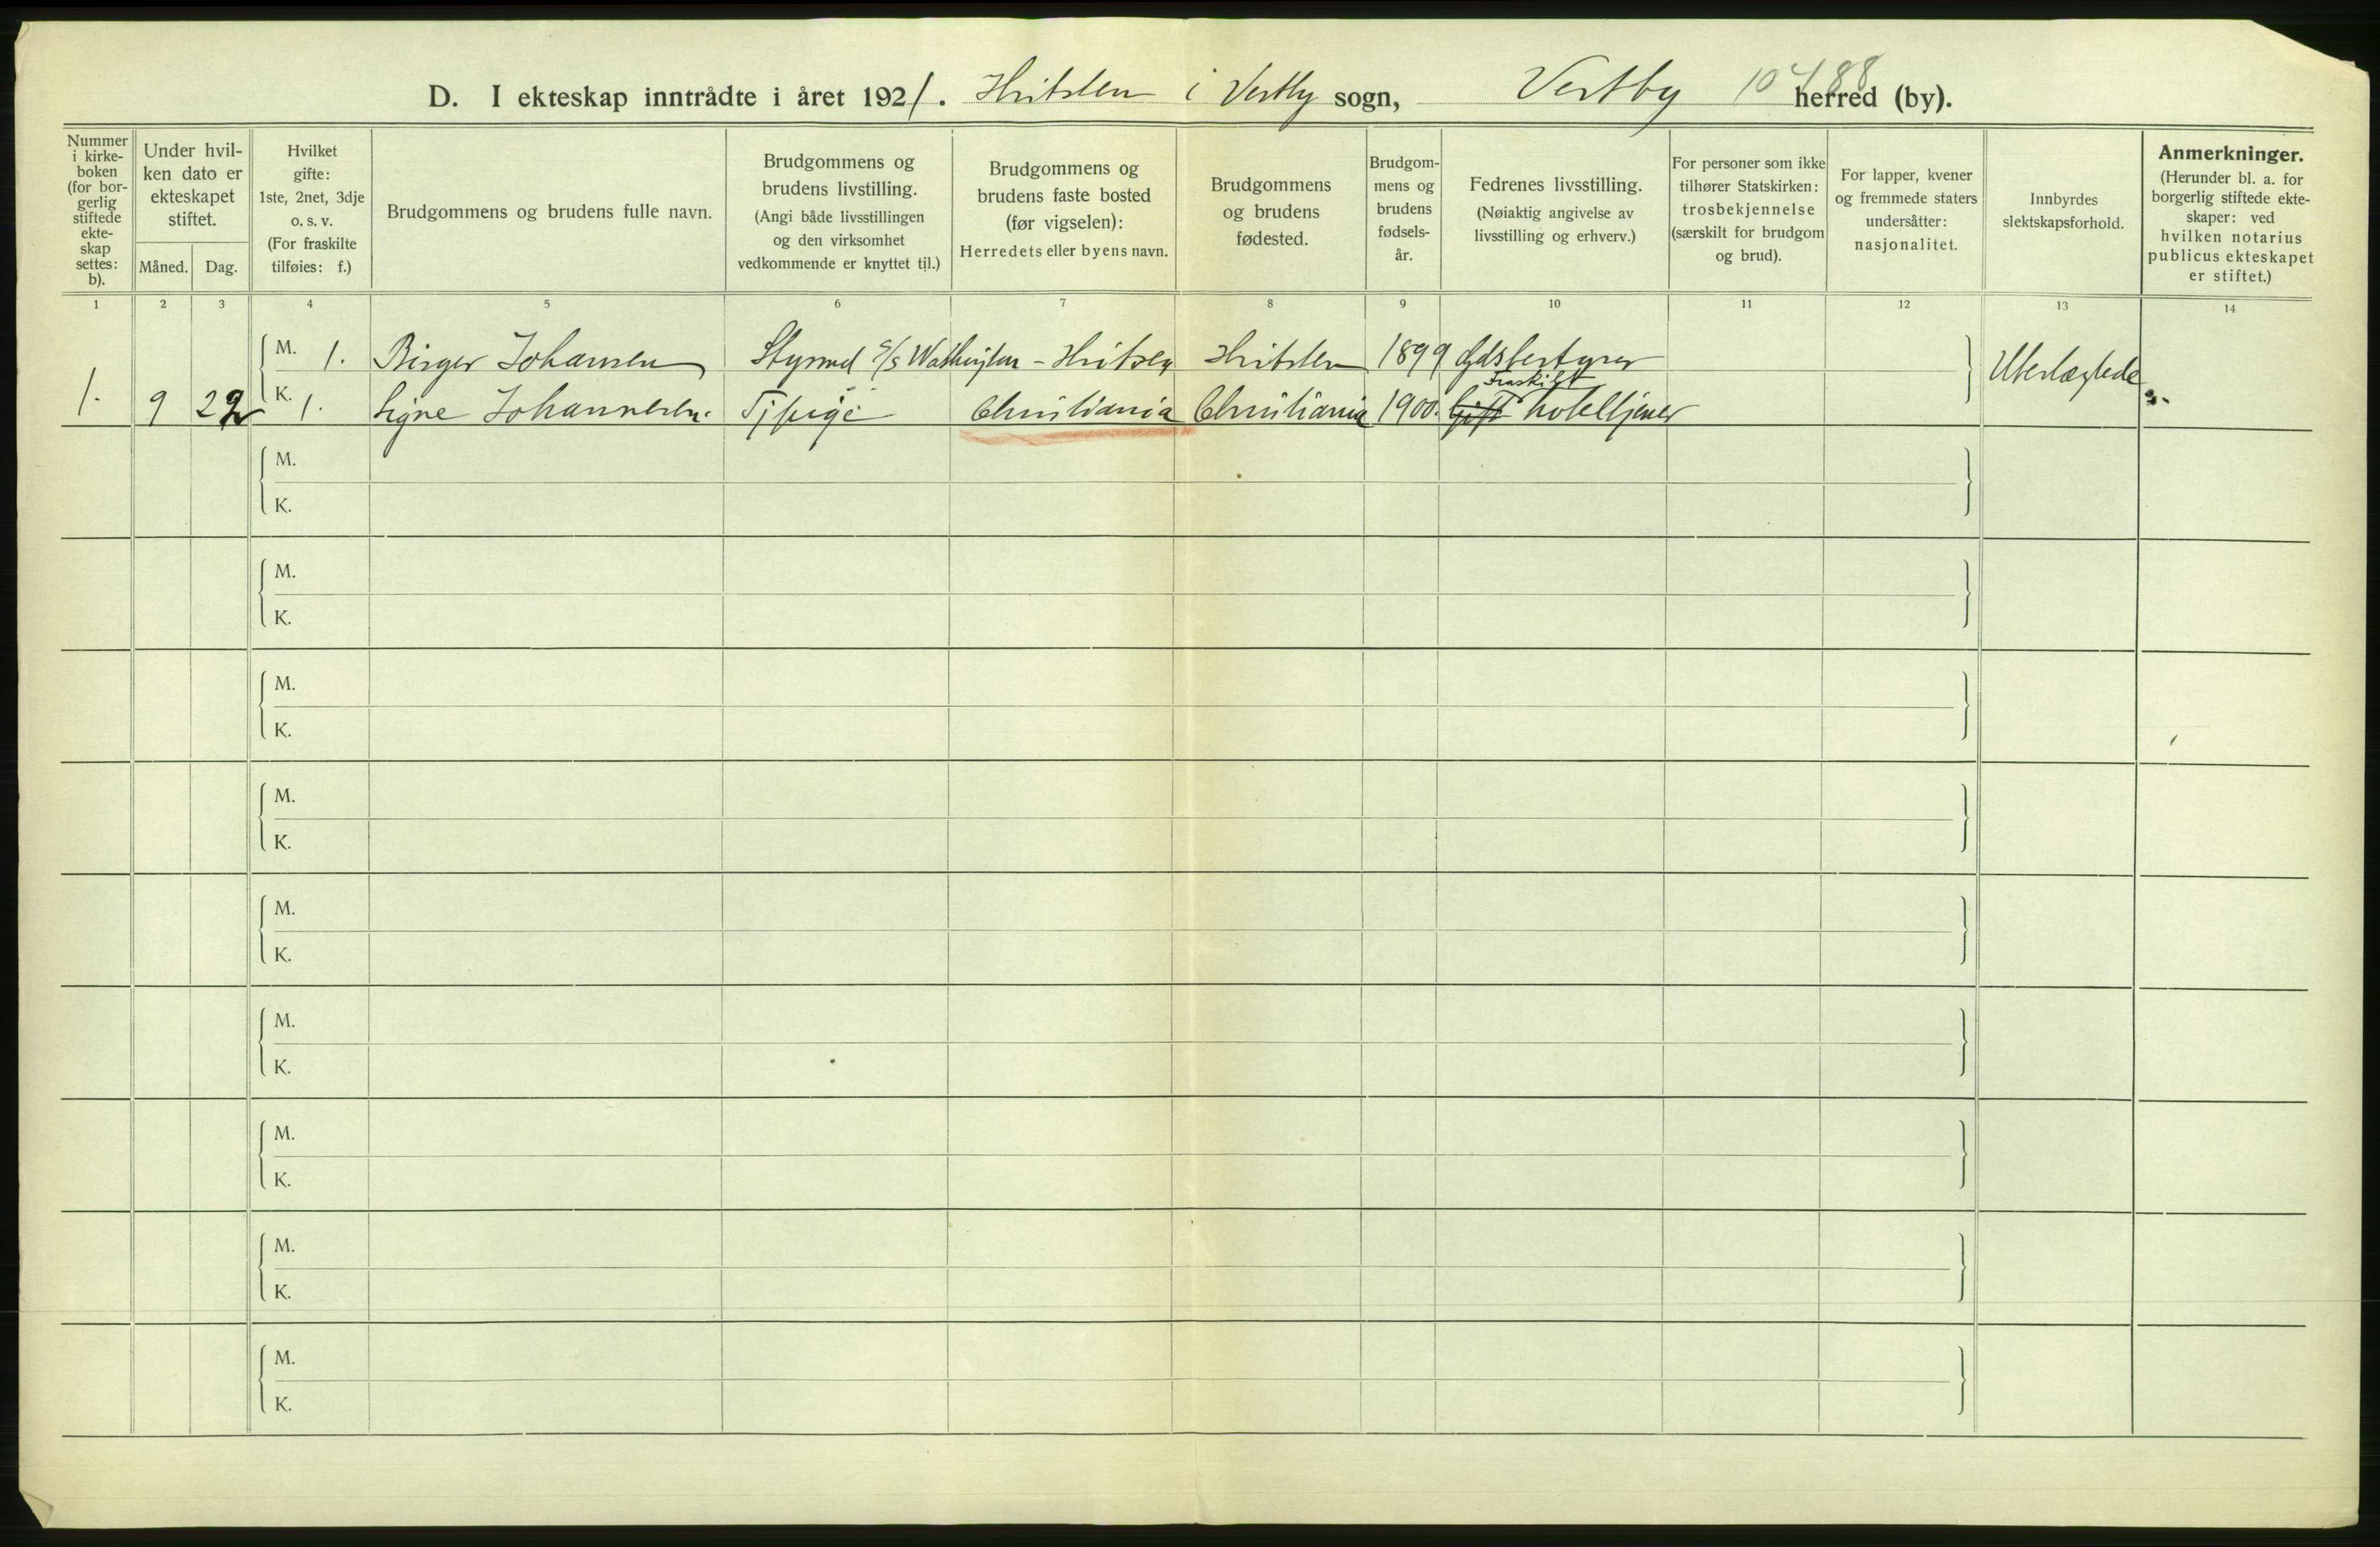 D. I ekteskap inntrådte i året 1921. Hvitsten i Vestby sogn, Vestby herred (by).
Nummer i kirke- boken (for bor- gerlig stiftede ekte- skap settes: b).
Under hvil- ken dato er ekteskapet stiftet.
Måned. Dag.
Hvilket gifte: 1ste, 2net, 3dje o. s. v. (For fraskilte tilføies: f.)
Brudgommens og brudens fulle navn.
Brudgommens og brudens livstilling. (Angi både livsstillingen og den virksomhet vedkommende er knyttet til.)
Brudgommens og brudens faste bosted (før vigselen): Herredets eller byens navn.
Brudgommens og brudens fødested.
Brudgom- mens og brudens fødsels- år.
Fedrenes livsstilling. (Nøiaktig angivelse av livsstilling og erhverv.)
For personer som ikke tilhører Statskirken: trosbekjennelse (særskilt for brudgom og brud).
For lapper, kvener og fremmede staters undersåtter: nasjonalitet.
Innbyrdes slektskapsforhold.
Anmerkninger. (Herunder bl. a. for borgerlig stiftede ekte- skaper: ved hvilken notarius publicus ekteskapet er stiftet.)
1 2 3 4 5 6 7 8 9 10 11 12 13 14
M. 1. Birger Johansen Styrmd s/s Washington - Hvitsten Hvitsten 1899 Gdsbestyrer Ubeslægtede
Fraskilt
1. 9 22 K. 1. Signe Johannesen. Tjpige Christiania Christiania 1900. Gift hotelltjener
M.
K.
M.
K.
M.
K.
M.
K.
M.
K.
M.
K.
M.
K.
M.
K.
M.
K.